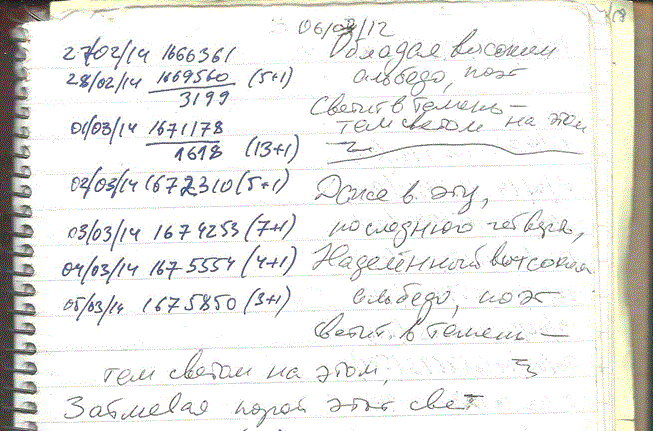 06/03/12
27/02/14 1666361
28/02/14 1669560 (5+1)
3199
01/03/14 1671178
1618 (13+1)
02/03/14 1672310 (5+1)
03/03/14 1674253 (7+1)
04/03/14 1675554 (4+1)
05/03/14 1675850 (3+1)
Обладая высоким
альбедо, поэт
Светит в темень –
тем светом на этом
Даже в эту,
последнюю четверть,
Наделённый высоким
альбедо, поэт
светит в темень –
тем светом на этом,
Затмевая порой этот свет